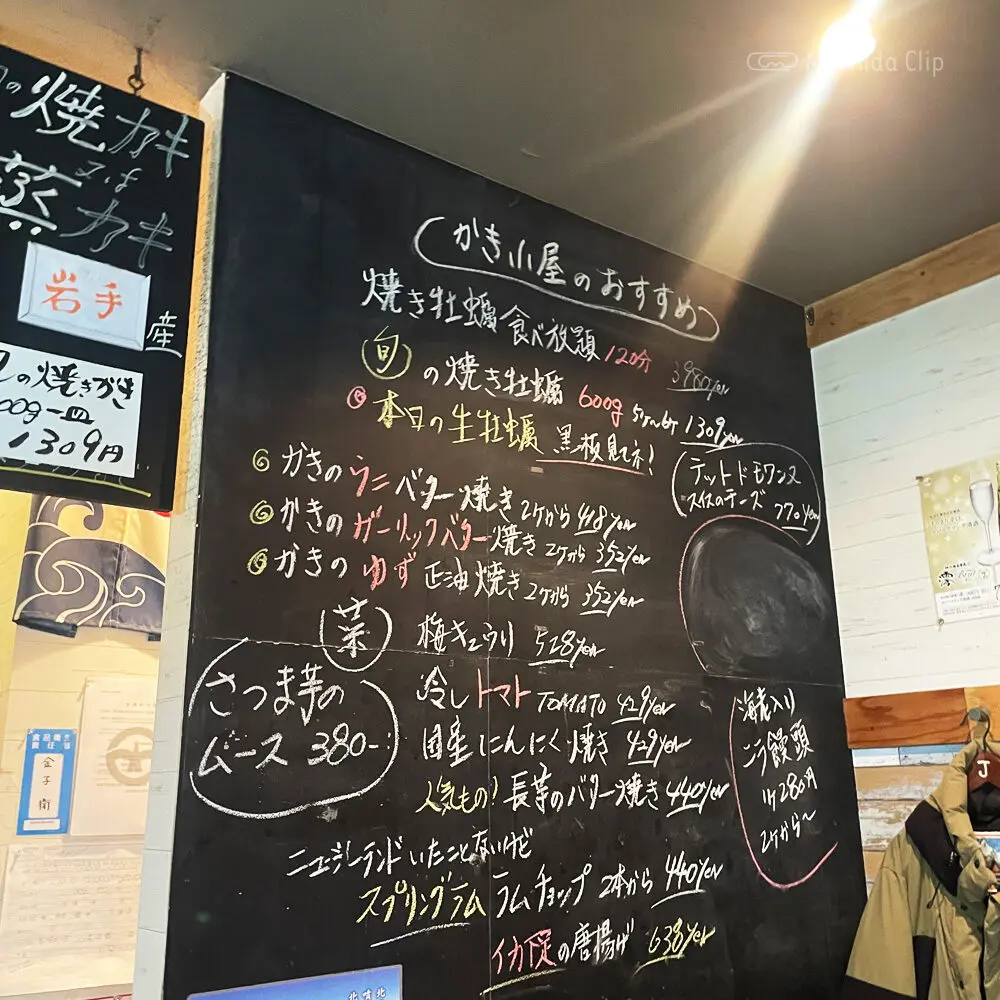 の焼カキ
又は
蒸カキ
岩手
産
の焼きがき
00g一皿
1309円
かき小屋のおすすめ
焼き牡蠣食べ放題 120分 3980yen
旬の焼き牡蠣 600g 5ケ〜6ケ 1309yen
本日の生牡蠣 黒板見てネ!
テットドモワンヌ
スイスのチーズ 770yen
かきのウニバター焼き 2ケから 418yen
かきのガーリックバター焼き 2ケから 352yen
かきのゆず正油焼き 2ケから 352yen
菜
梅キュウリ 528yen
さつま芋の
ムース 380-
冷しトマト TOMATO 429yen
国産にんにく焼き 429yen
人気もの! 長芋のバター焼き 440yen
海老入り
ニラ饅頭
1ケ280円
2ケから〜
ニュージーランドいたことないけど
スプリングラム ラムチョップ 2本から 440yen
イカ足の唐揚げ 638yen
食品衛生
責任者
金子 衛
J
Clip